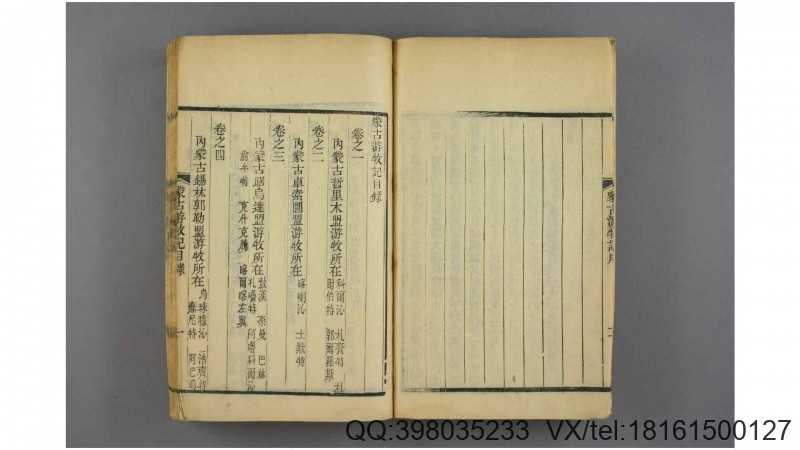 蒙古游牧記目錄
卷之一
內蒙古哲里木盟游牧所在 科爾沁 札賚特
郭爾羅斯
卷之二
內蒙古卓索圖盟游牧所在 喀喇沁 土默特
卷之三
內蒙古昭烏達盟游牧所在 敖漢 奈曼 巴林
札嚕特 阿嚕科爾沁
翁牛特 克什克騰 喀爾喀左翼
卷之四
內蒙古錫林郭勒盟游牧所在 烏珠穆沁 浩齊特
蘇尼特
蒙古游牧記目錄 一
QQ:398035233 VX/tel:18161500127